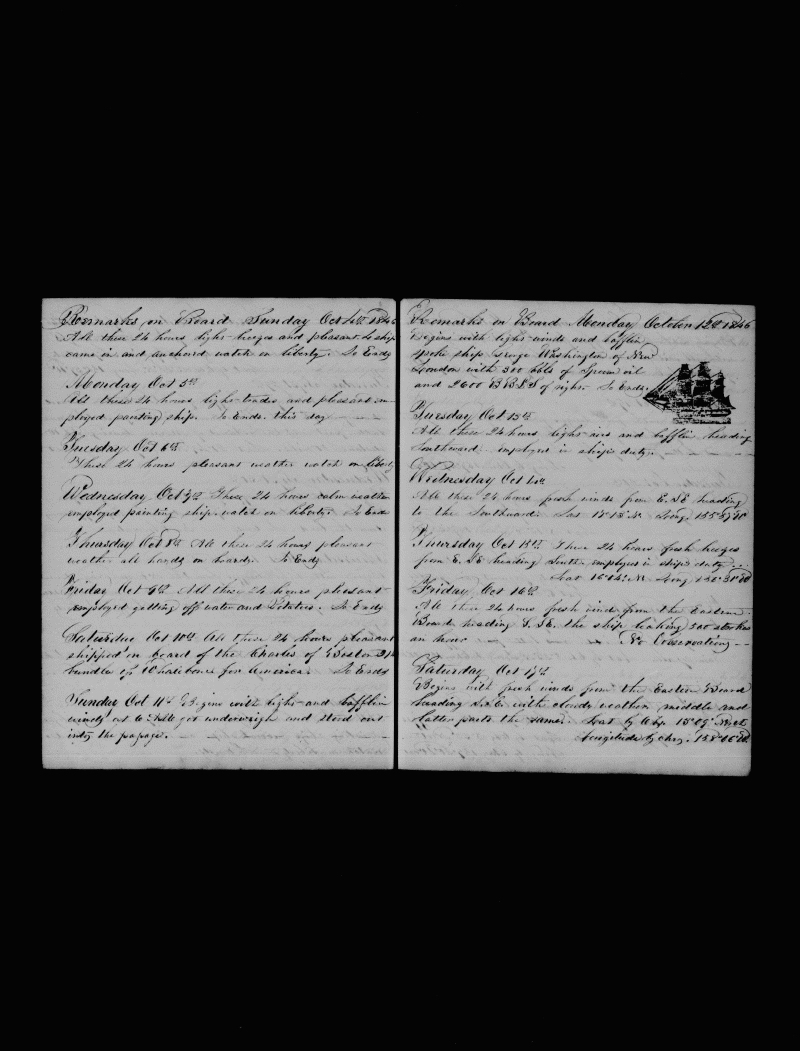 Remarks on Board Sunday Oct 4th 1846
All these 24 hours light breezes and pleasant. So ship
came in and anchord watch on liberty. So Ends
Monday Oct 5th
All these 24 hours light trades and pleasant em
ployed painting ship. So Ends this day
Tuesday Oct 6th
These 24 hours pleasant weather watch on liberty
Wednesday Oct 7th These 24 hours calm weather
employed painting ship. watch on liberty. So Ends
Thursday Oct 8th All these 24 hours pleasant
weather all hands on board. So Ends
Friday Oct 9th All these 24 hours pleasant
employed getting off water and Potatoes. So Ends
Saturday Oct 10th All these 24 hours pleasant
shipped on board of the Charles of Boston 214
bundles of Whalebone for America. So Ends
Sunday Oct 11th Begins with light and bafflin
winds at 6 AM got underweigh and stood out
into the passage.
Remarks on Board Monday October 12th 1846
Begins with light winds and bafflin
spoke ship George Washington of New
London with 300 bbls of Sperm oil
and 2600 BBLS of right. So Ends.
Tuesday Oct 13th
All these 24 hours light airs and bafflin heading
Southward. employed in ship's duty.
Wednesday Oct 14th
All these 24 hours fresh winds from E.SE heading
to the Southward. Lat 18°18 N. Long. 155°57 W
Thursday Oct 15th These 24 hours fresh breezes
from E. SE heading South. employed in ship's duty
Lat 16°04 N Long 156°31 W
Friday Oct 16th
All these 24 hours fresh winds from the Eastern
Board heading S. SE. the ship leaking 300 strokes
an hour No Observation
Saturday Oct 17th
Begins with fresh winds from the Eastern Board
heading S.S.E. with cloudy weather middle and
latter parts the same. Lat by Obs 13°09' N
Longitude by chro. 158°06 W.